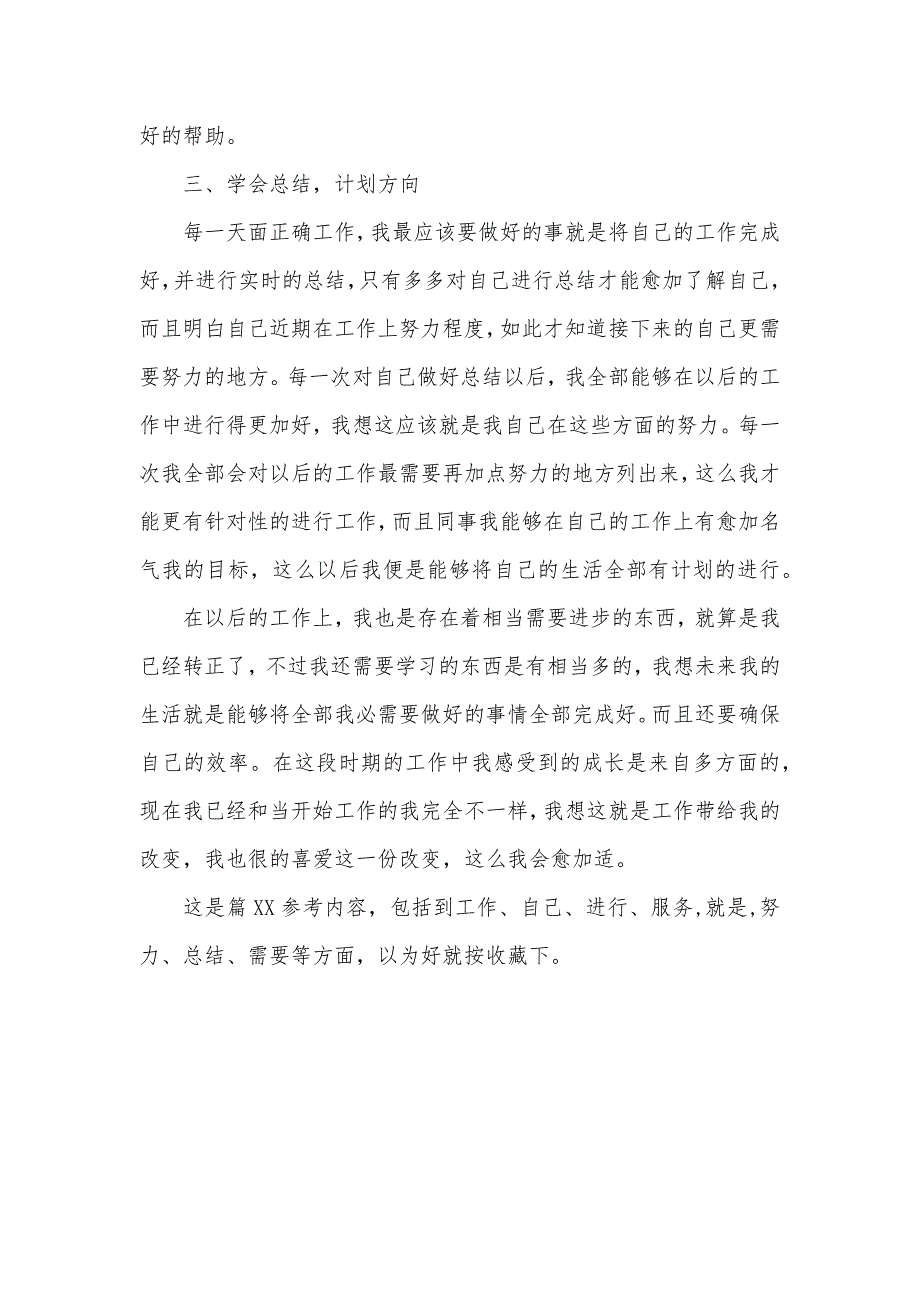 好的帮助。
三、学会总结，计划方向
每一天面正确工作，我最应该要做好的事就是将自己的工作完成
好，并进行实时的总结，只有多多对自己进行总结才能愈加了解自己，
而且明白自己近期在工作上努力程度，如此才知道接下来的自己更需
要努力的地方。每一次对自己做好总结以后，我全部能够在以后的工
作中进行得更加好，我想这应该就是我自己在这些方面的努力。每一
次我全部会对以后的工作最需要再加点努力的地方列出来，这么我才
能更有针对性的进行工作，而且同事我能够在自己的工作上有愈加名
气我的目标，这么以后我便是能够将自己的生活全部有计划的进行。
在以后的工作上，我也是存在着相当需要进步的东西，就算是我
已经转正了，不过我还需要学习的东西是有相当多的，我想未来我的
生活就是能够将全部我必需要做好的事情全部完成好。而且还要确保
自己的效率。在这段时期的工作中我感受到的成长是来自多方面的，
现在我已经和当开始工作的我完全不一样，我想这就是工作带给我的
改变，我也很的喜爱这一份改变，这么我会愈加适。
这是篇 XX 参考内容，包括到工作、自己、进行、服务,就是,努
力、总结、需要等方面，以为好就按收藏下。